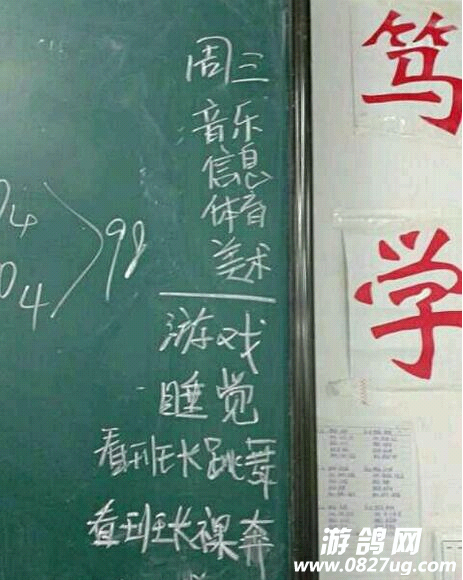 周三
音乐
信息
体育
美术
游戏
睡觉
看班长跳舞
看班长裸奔
4
4
98
笃
学
游鸽网
www.0827ug.com